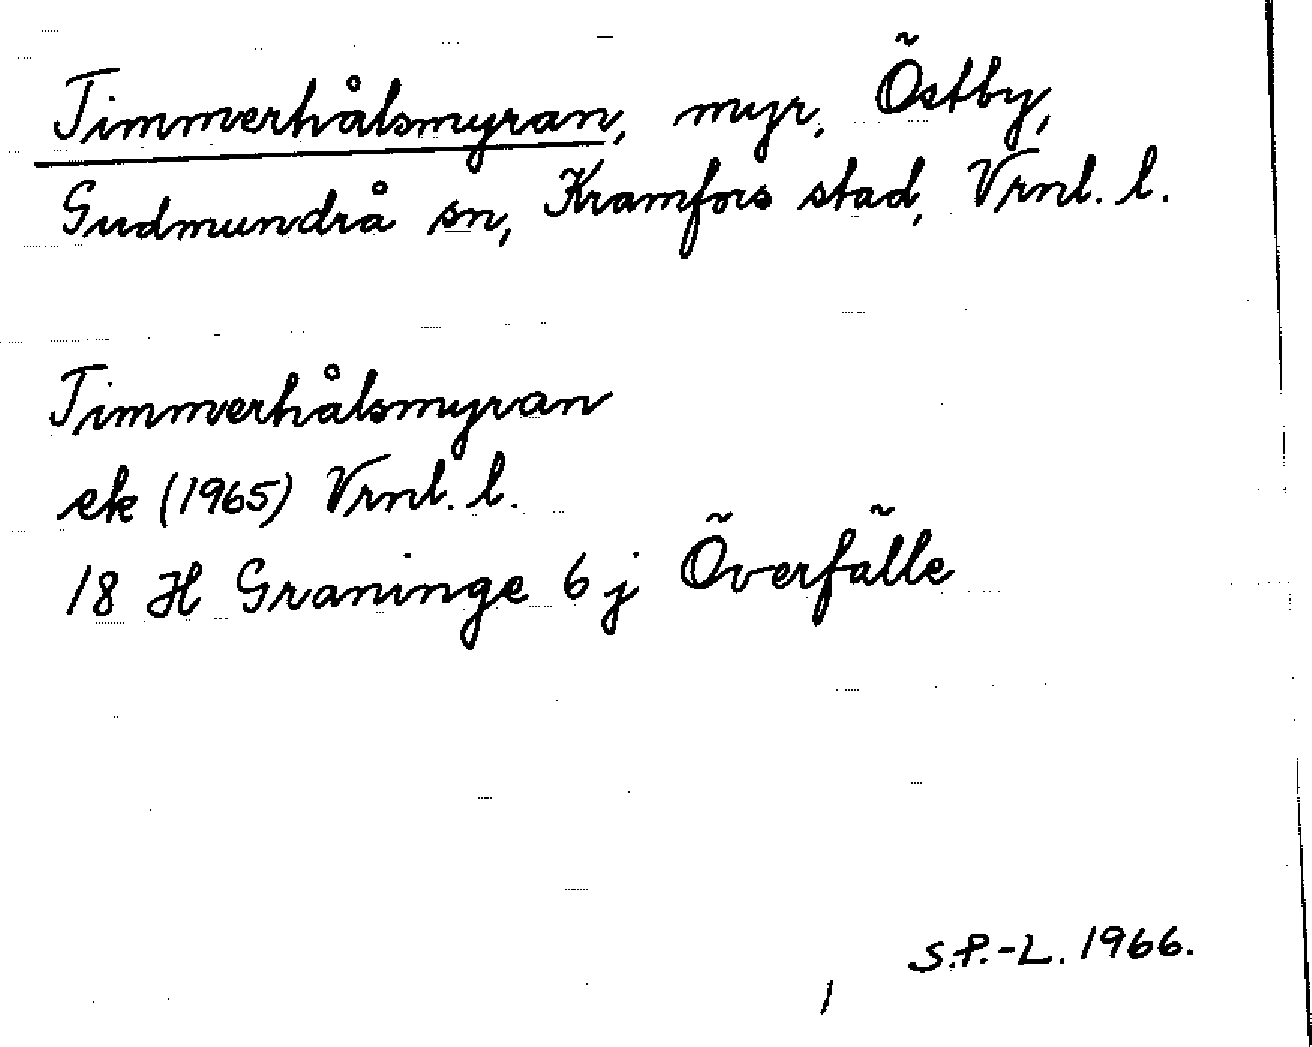 Timmerhålsmyran, myr, Östby,
Gudmundrå sn, Kramfors stad, Vrnl. l.
Timmerhålsmyran
ek (1965) Vrnl. l.
18 H Graninge 6 j Överfälle
S.P.-L. 1966.